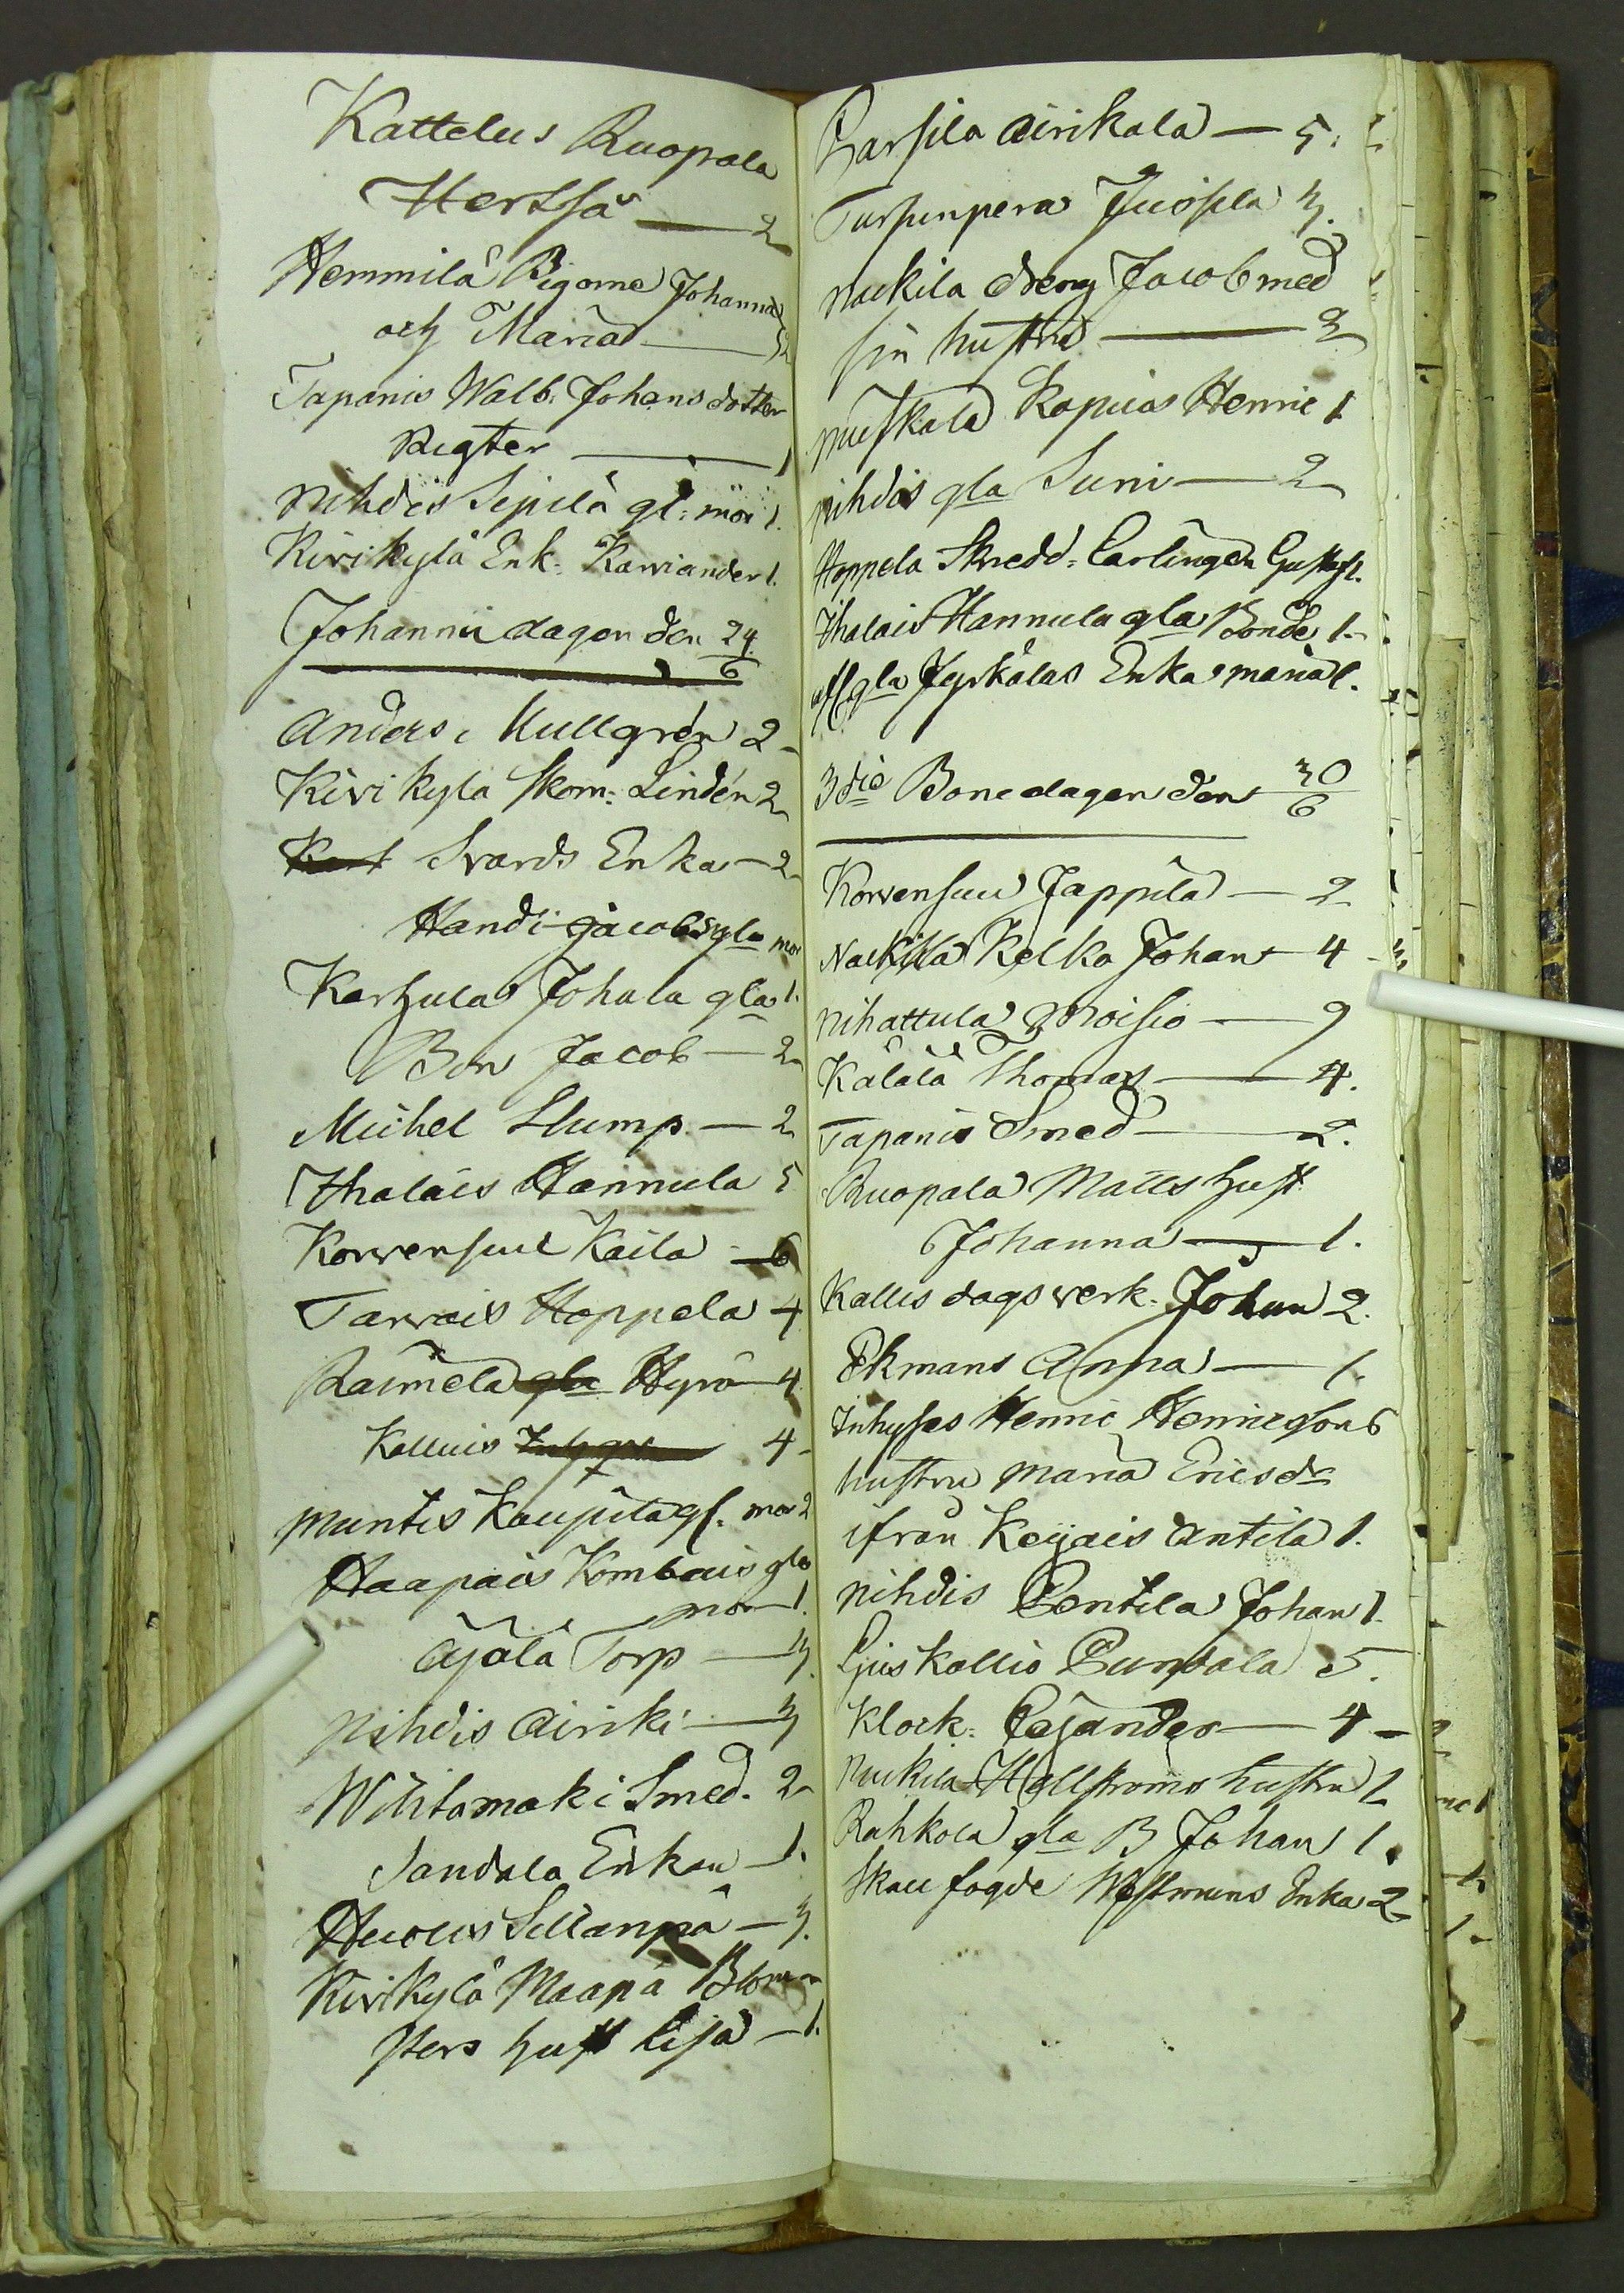 Kattelus Ruopala
Hertsä — 2
Hemmilä Pigorne Johanna
och Maria — 2
Tapanis Walb. Johansdotter
Rigter — 1
Nihdis Sepilä gl: mor 1.
Kivikylä Enk: Karriander 1.
Johanni dagen den 24/6
Anders Kullgrén 2
Kivikylä Skom: Lindén 2
Svards Enka — 2
Handi Jacobs gla mor
Karhula Johala gla 1.
Bon Jacob — 2
Michel Slump — 2
Ihalais Hannula 5
Korvensuu Kaila — 6
Tarvais Hoppela 4
Raimela gla Hyrö 4
Kalluis 4
Muntis Kaupila gl. mor 2
Haapais Kombais gla
mor — 1.
Äjälä Torp — 3.
Nihdis Airiki — 3
Wihtamaki Smed. 2
Sandala Enkan — 1.
Huolis Sillanpä — 3.
Kivikylä Maapä Blom
sters hust Lisa — 1.
Parsila Airikala — 5.
Tursunpera Juosila 3.
Naukila dreng Jacob med
sin hustru — 2
Muskala Kapuas Henric 1
Nihdis gla Suni — 2
Hoppela Skredd: Carlingen Gustaf 1.
Ihalais Hannula gla Bonde 1.
gla Jyrkälas Enka Maria 1.
3die Bonedagen den 30/6
Korvensuu Jappila — 2
Naukila Kelka Johan 4
Nihattula Moisio — 9
Kälälä Thomas — 4.
Tapanis Smed — 2.
Ruopala Matts hust
Johanna — 1.
Kallis dagsverk. Johan 2.
Ekmans Anna — 1.
Inhyses Henric Henricsons
hustru Maria Ericsdr
ifrån Keijais Antila 1.
Nihdis Pentila Johan 1.
Ljuskallio Puntala 5.
Klock: Cajander — 4 —
Naukila Hallströms hustru 1
Rahkola gla B Johan 1.
Skau fogde Westmans Enka 2